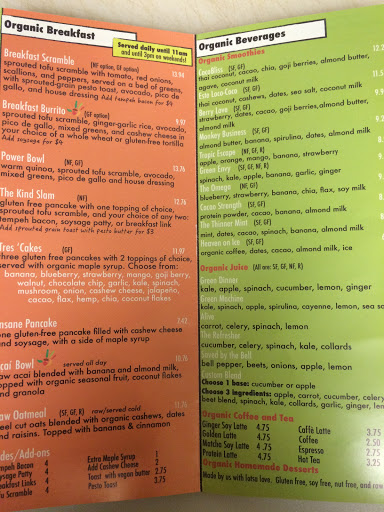 Organic Breakfast
Served daily until 11am
and until 3pm on weekends!
Breakfast Scramble (NF option, GF option) 13.94
sprouted tofu scramble with tomato, red onions,
scallions, and peppers, served on a bed of greens,
with sprouted-grain pesto toast, avocado, pico de
gallo, and house dressing Add tempeh bacon for $4
Breakfast Burrito (GF option) 9.97
sprouted tofu scramble, ginger-garlic rice, avocado,
pico de gallo, mixed greens, and cashew cheese in
your choice of a whole wheat or gluten-free tortilla
Add soysage for $4
Power Bowl (NF, GF) 13.76
warm quinoa, sprouted tofu scramble, avocado,
mixed greens, pico de gallo and house dressing
The Kind Slam (NF, GF) 12.76
gluten free pancake with one topping of choice,
sprouted tofu scramble, and your choice of any two:
tempeh bacon, soysage patty, or breakfast link
Add sprouted grain toast with pesto butter for $3
Tres 'Cakes (GF) 11.97
three gluten free pancakes with 2 toppings of choice,
served with organic maple syrup. Choose from:
banana, blueberry, strawberry, mango, goji berry,
walnut, chocolate chip, garlic, kale, spinach,
mushroom, onion, cashew cheese, jalapeño,
cacao, flax, hemp, chia, coconut flakes
nsane Pancake 7.43
one gluten-free pancake filled with cashew cheese
and soysage, with a side of maple syrup
cai Bowl served all day 10.76
raw acai blended with banana and almond milk,
topped with organic seasonal fruit, coconut flakes
and granola
aw Oatmeal (SF, GF, R) raw/served cold
teel cut oats blended with organic cashews, dates
and raisins. Topped with bananas & cinnamon
des/Add-ons
mpeh Bacon 4
ysage Patty 4
eakfast Links 4
fu Scramble 4
Extra Maple Syrup 1
Add Cashew Cheese 2
Toast with vegan butter 2.75
Pesto Toast 3.75
Organic Beverages
Organic Smoothies
CocoBliss (SF, GF)
thai coconut, cacao, chia, goji berries, almond butter,
agave, coconut milk
Foto Loco-Coco (SF, GF)
thai coconut, cashews, dates, sea salt, coconut milk
Berry Love (SF, GF)
strawberry, dates, cacao, goji berries,almond butter,
almond milk
Monkey Business (SF, GF)
almond butter, banana, spirulina, dates, almond milk
Tropic Escape (NF, SF, GF, R)
apple, orange, mango, banana, strawberry
Green Envy (SF, GF, NF, R)
spinach, kale, apple, banana, garlic, ginger
The Omega (NF, GF)
blueberry, strawberry, banana, chia, flax, soy milk
Cacao Strength (SF, GF)
protein powder, cacao, banana, almond milk
The Thinner Mint (SF, GF)
mint, dates, cacao, spinach, banana, almond milk
Heaven on Ice (SF, GF)
organic coffee, dates, cacao, almond milk, ice
Organic Juice (All are: SF, GF, NF, R)
Green Dinner
kale, apple, spinach, cucumber, lemon, ginger
Green Machine
kale, spinach, apple, spirulina, cayenne, lemon, sea
Alive
carrot, celery, spinach, lemon
The Refresher
cucumber, celery, spinach, kale, collards
Saved by the Bell
bell pepper, beets, onions, apple, lemon
Custom Blend
Choose 1 base: cucumber or apple
Choose 3 ingredients: apple, carrot, cucumber, celery,
beet blend, spinach, kale, collards, garlic, ginger,
Organic Coffee and Tea
Ginger Soy Latte 4.75
Golden Latte 4.75
Matcha Soy Latte 4.75
Protein Latte 4.75
Caffè Latte 3.75
Coffee 2.50
Espresso 2.75
Hot Tea 3.25
Organic Homemade Desserts
Made by us with lotsa love. Gluten free, soy free, nut free, and raw